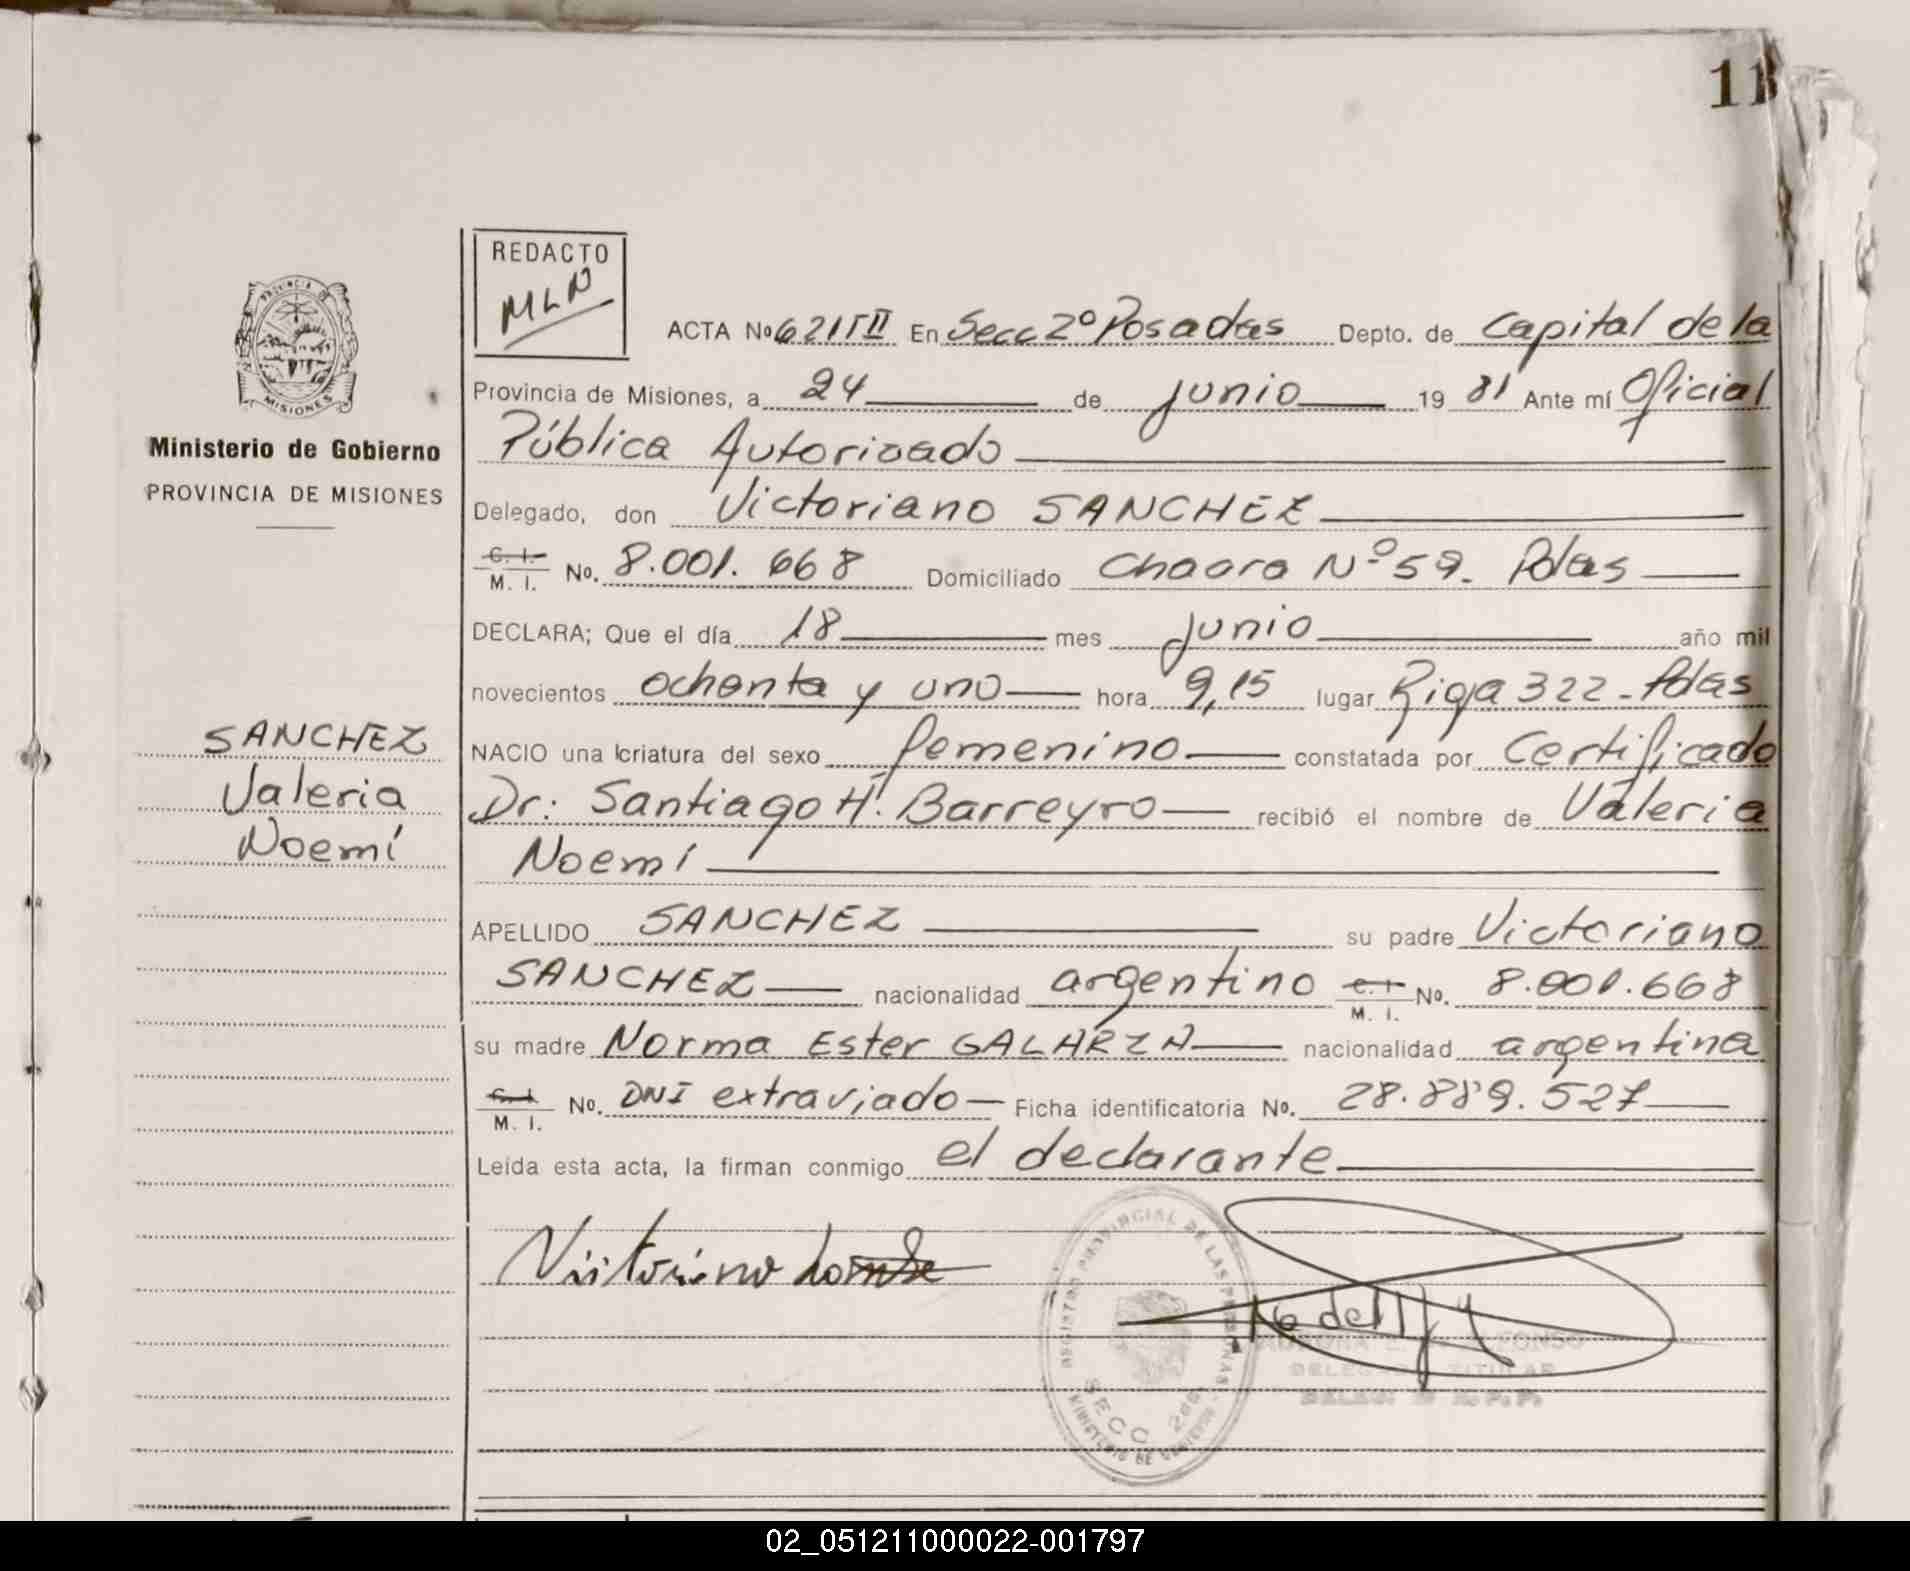 11
REDACTO
MLN
ACTA No 621 T II En Secc 2º Posadas Depto. de Capital de la
Provincia de Misiones, a 24 de junio 19 81 Ante mí Oficial
Pública Autorizado
Delegado, don Victoriano SANCHEZ
C. I. M. I. No. 8.001.668 Domiciliado Chacra Nº 59. Pdas
DECLARA; Que el día 18 mes junio año mil
novecientos ochenta y uno hora 9,15 lugar Riga 322 - Pdas
NACIO una criatura del sexo femenino constatada por Certificado
Dr: Santiago H. Barreyro recibió el nombre de Valeria
Noemí
APELLIDO SANCHEZ su padre Victoriano
SANCHEZ nacionalidad argentino C. I. M. I. No. 8.001.668
su madre Norma Ester GALARZA nacionalidad argentina
C. I. M. I. No. DNI extraviado Ficha identificatoria No. 28.889.527
Leída esta acta, la firman conmigo el declarante
PROVINCIA DE
MISIONES
Ministerio de Gobierno
PROVINCIA DE MISIONES
SANCHEZ
Valeria
Noemí
REGISTRO PROVINCIAL DE LAS PERSONAS
SECC
MINISTERIO DE GOBIERNO
TITULAR
02_051211000022-001797